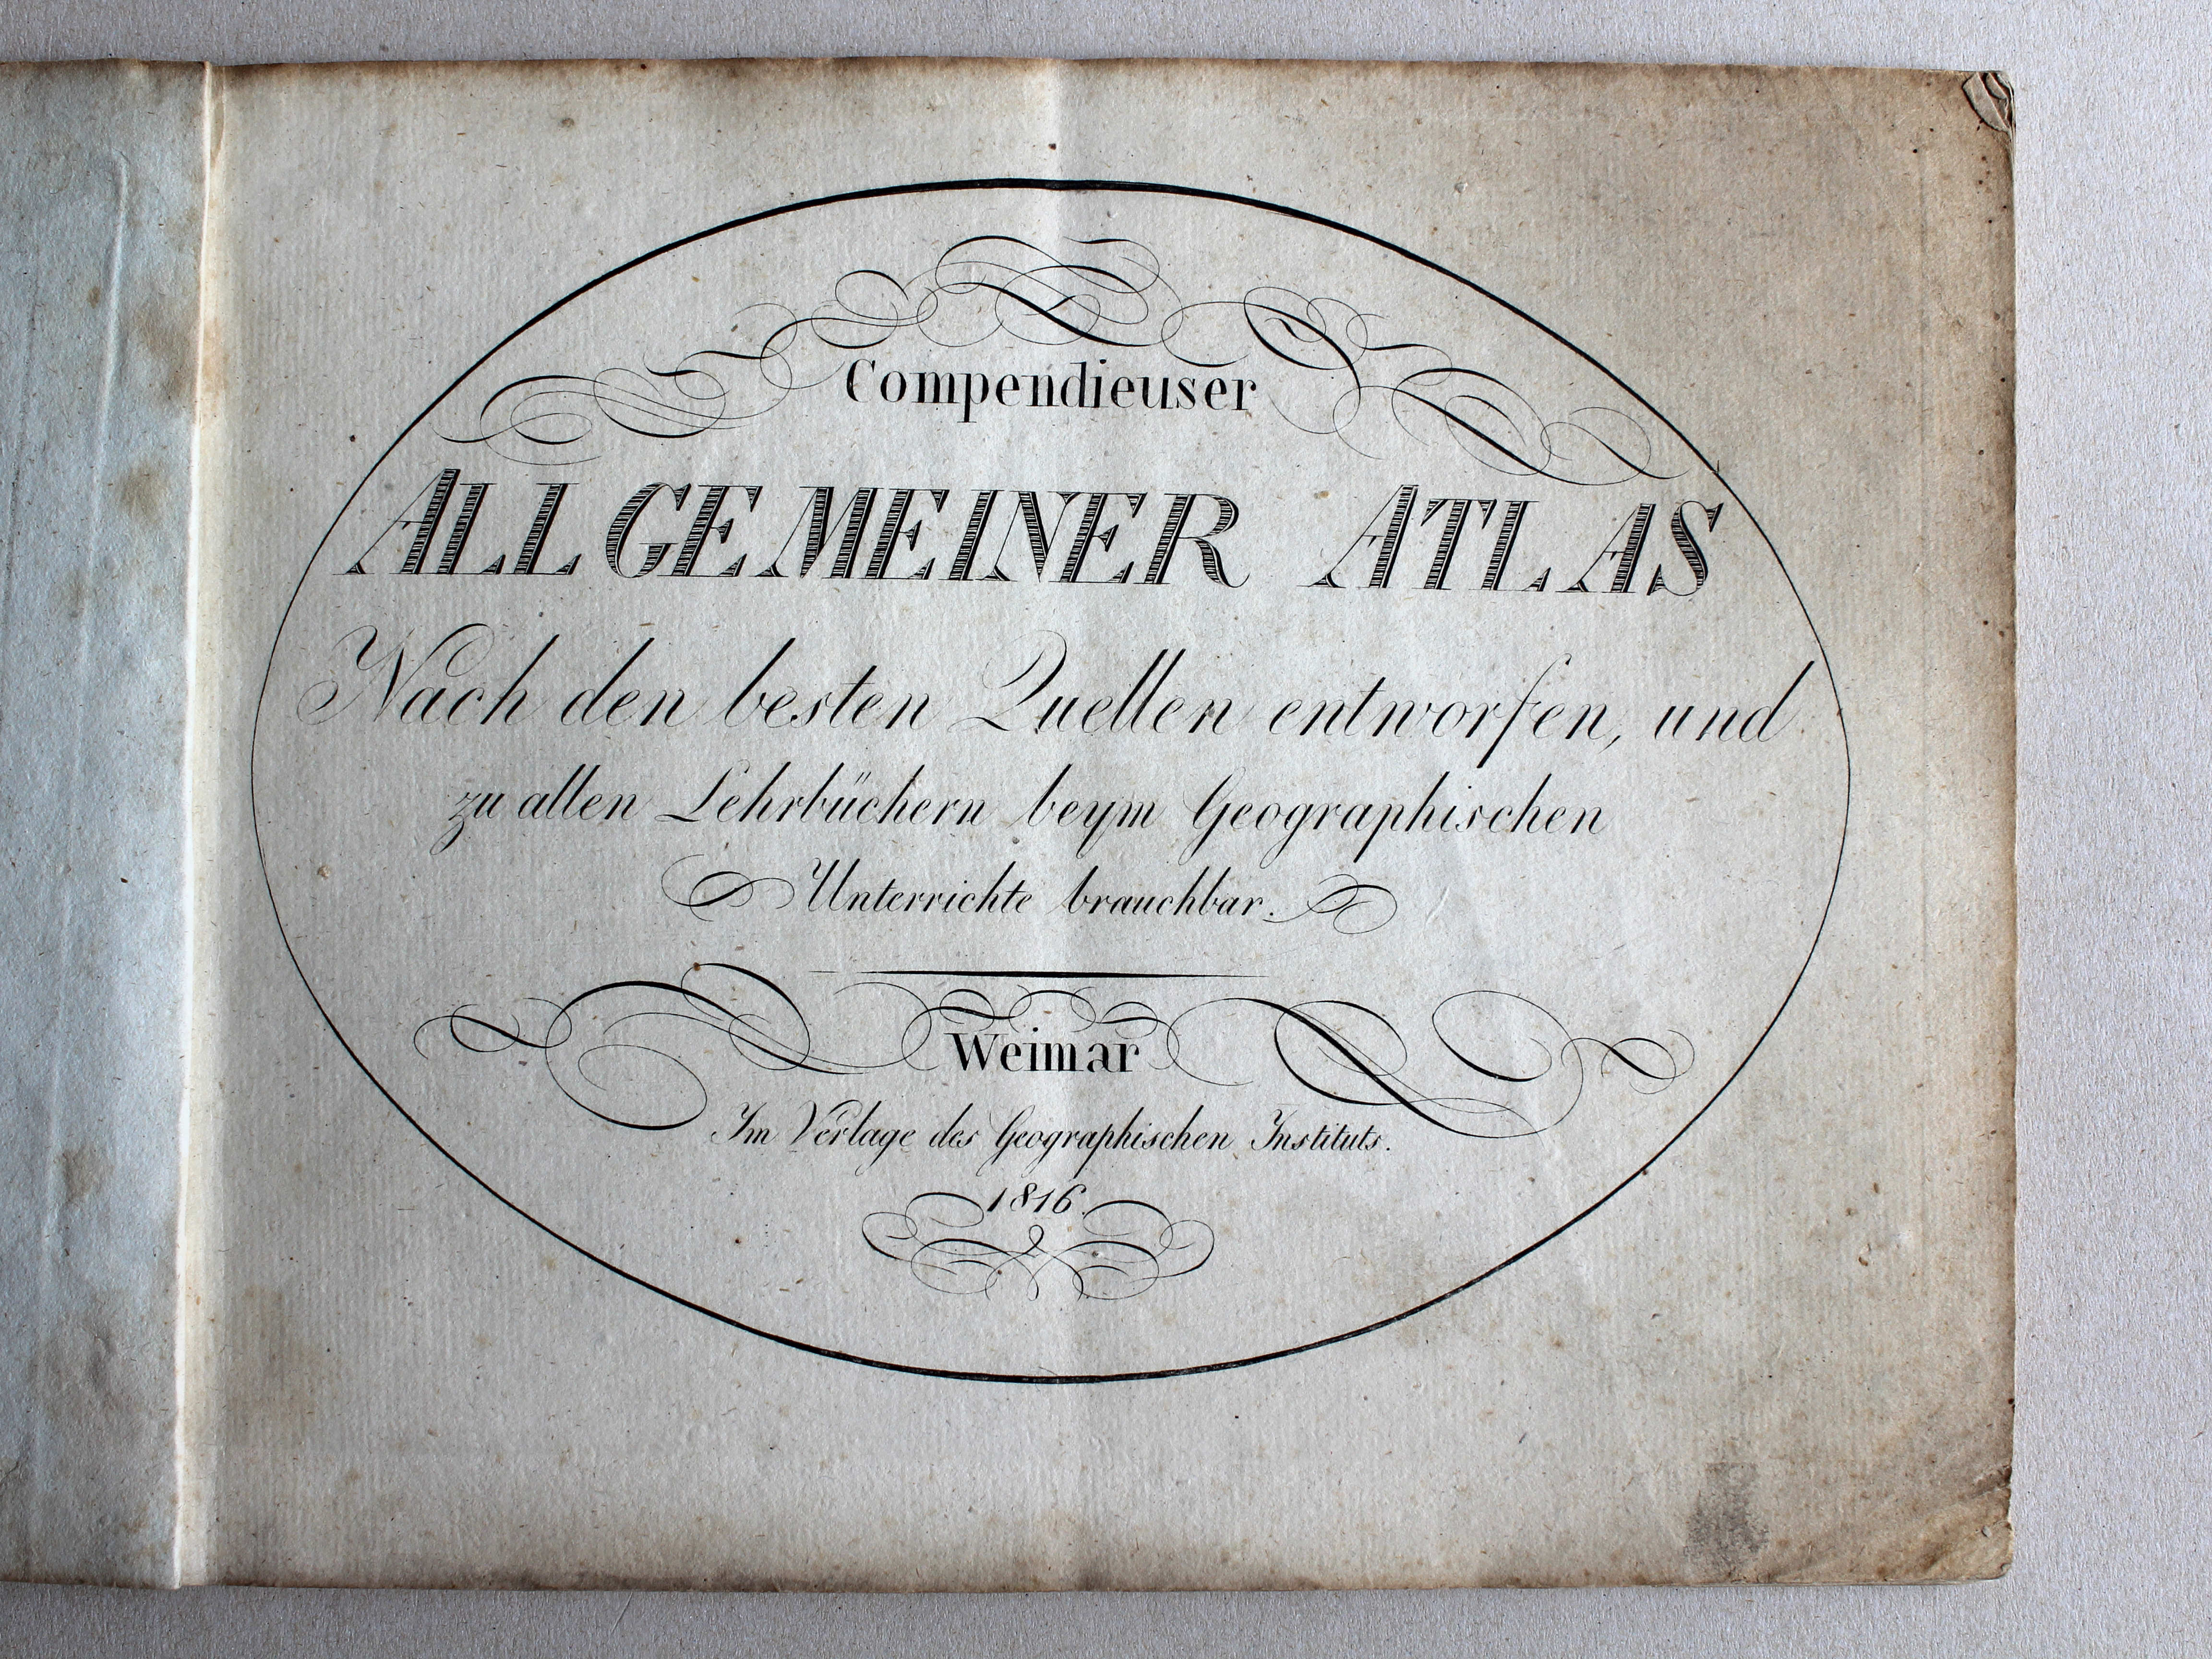 Compendieuser
ALLGEMEINER ATLAS
Nach den besten Quellen entworfen, und
zu allen Lehrbüchern beym Geographischen
Unterrichte brauchbar.
Weimar
Im Verlage des Geographischen Instituts.
1816.